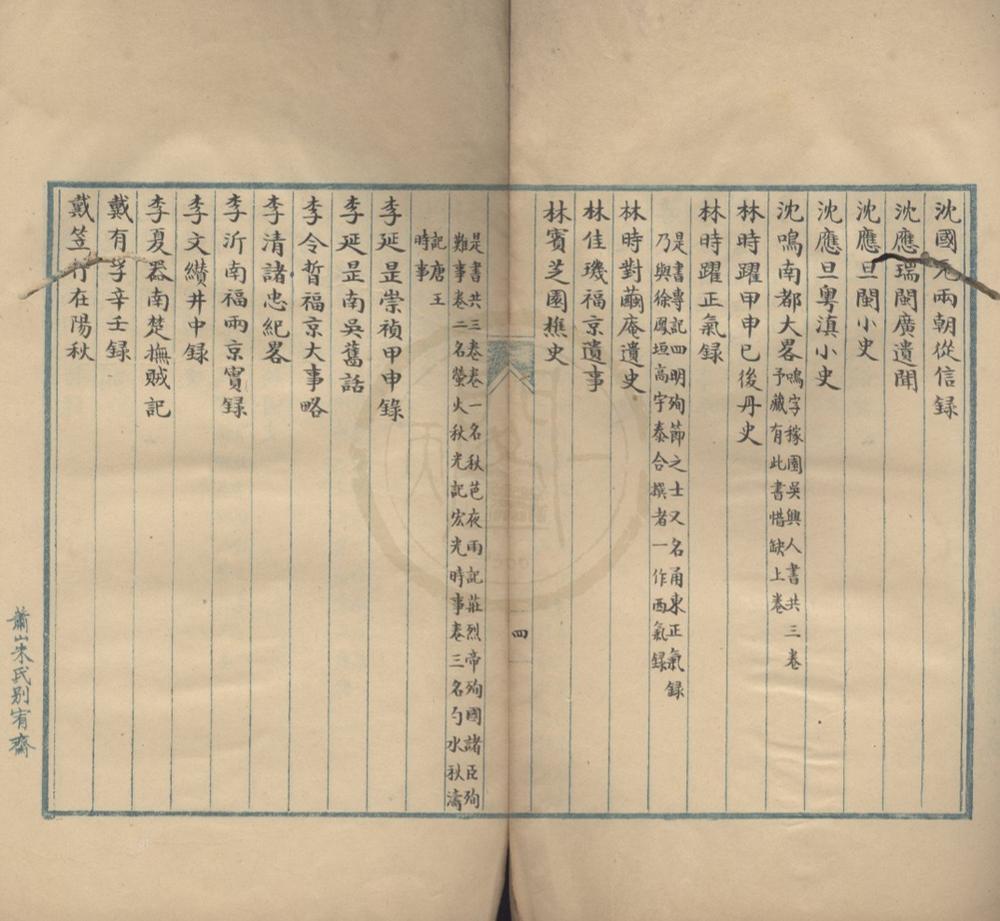 沈國元兩朝從信録
沈應瑞閩廣遺聞
沈應旦閩小史
沈應旦粵滇小史
沈鳴南都大畧鳴字稼園吳興人書共三卷
予藏有此書惜缺上卷
林時躍甲申已後丹史
林時躍正氣録
是書專記四明殉節之士又名甬東正氣録
乃與徐鳳垣高宇泰合撰者一作西氣録
林時對繭庵遺史
林佳璣福京遺事
林賓芝園樵史
四
是書共三卷卷一名秋芭夜雨記莊烈帝殉國諸臣殉
難事卷二名螢火秋光記宏光時事卷三名勺水秋濤
記唐王
時事
李延昰崇禎甲申錄
李延昰南吳舊話
李令晳福京大事略
李清諸忠紀畧
李沂南福兩京實録
李文纘井中録
李夏器南楚撫賊記
戴有孚辛壬録
戴笠行在陽秋
蕭山朱氏別宥齋